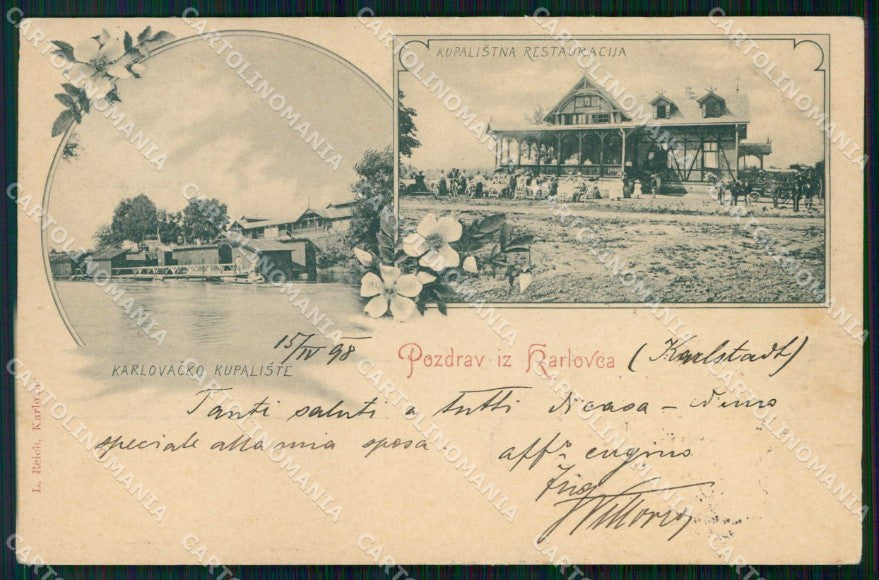 KUPALIŠTNA RESTAURACIJA
KARLOVAČKO KUPALIŠTE
15/IV 98
Pozdrav iz Karlovca (Karlstadt)
Tanti saluti a tutti di casa – ed uno
speciale alla mia sposa.
aff.º cugino
Vittorio
L. Reich, Karlovac
CARTOLINOMANIA